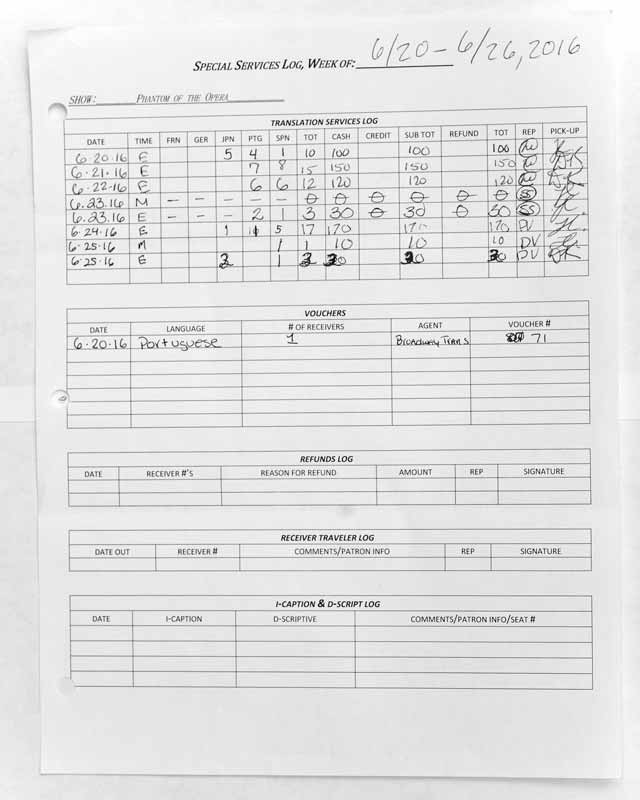 SPECIAL SERVICES LOG, WEEK OF: 6/20 - 6/26, 2016
SHOW: PHANTOM OF THE OPERA
TRANSLATION SERVICES LOG
DATE TIME FRN GER JPN PTG SPN TOT CASH CREDIT SUB TOT REFUND TOT REP PICK-UP
6.20.16 E 5 4 1 10 100 100 100
6.21.16 E 7 8 15 150 150 150
6.22.16 E 6 6 12 120 120 120
6.23.16 M - - - - - 0 0 0 0 0 0 SS
6.23.16 E - - - 2 1 3 30 0 30 0 30 SS
6.24.16 E 1 11 5 17 170 170 170 DV
6.25.16 M 1 1 10 10 10 DV
6.25.16 E 1 30 30 30 DV
VOUCHERS
DATE LANGUAGE # OF RECEIVERS AGENT VOUCHER #
6.20.16 Portuguese 1 Broadway Trans 71
REFUNDS LOG
DATE RECEIVER #'S REASON FOR REFUND AMOUNT REP SIGNATURE
RECEIVER TRAVELER LOG
DATE OUT RECEIVER # COMMENTS/PATRON INFO REP SIGNATURE
I-CAPTION & D-SCRIPT LOG
DATE I-CAPTION D-SCRIPTIVE COMMENTS/PATRON INFO/SEAT #